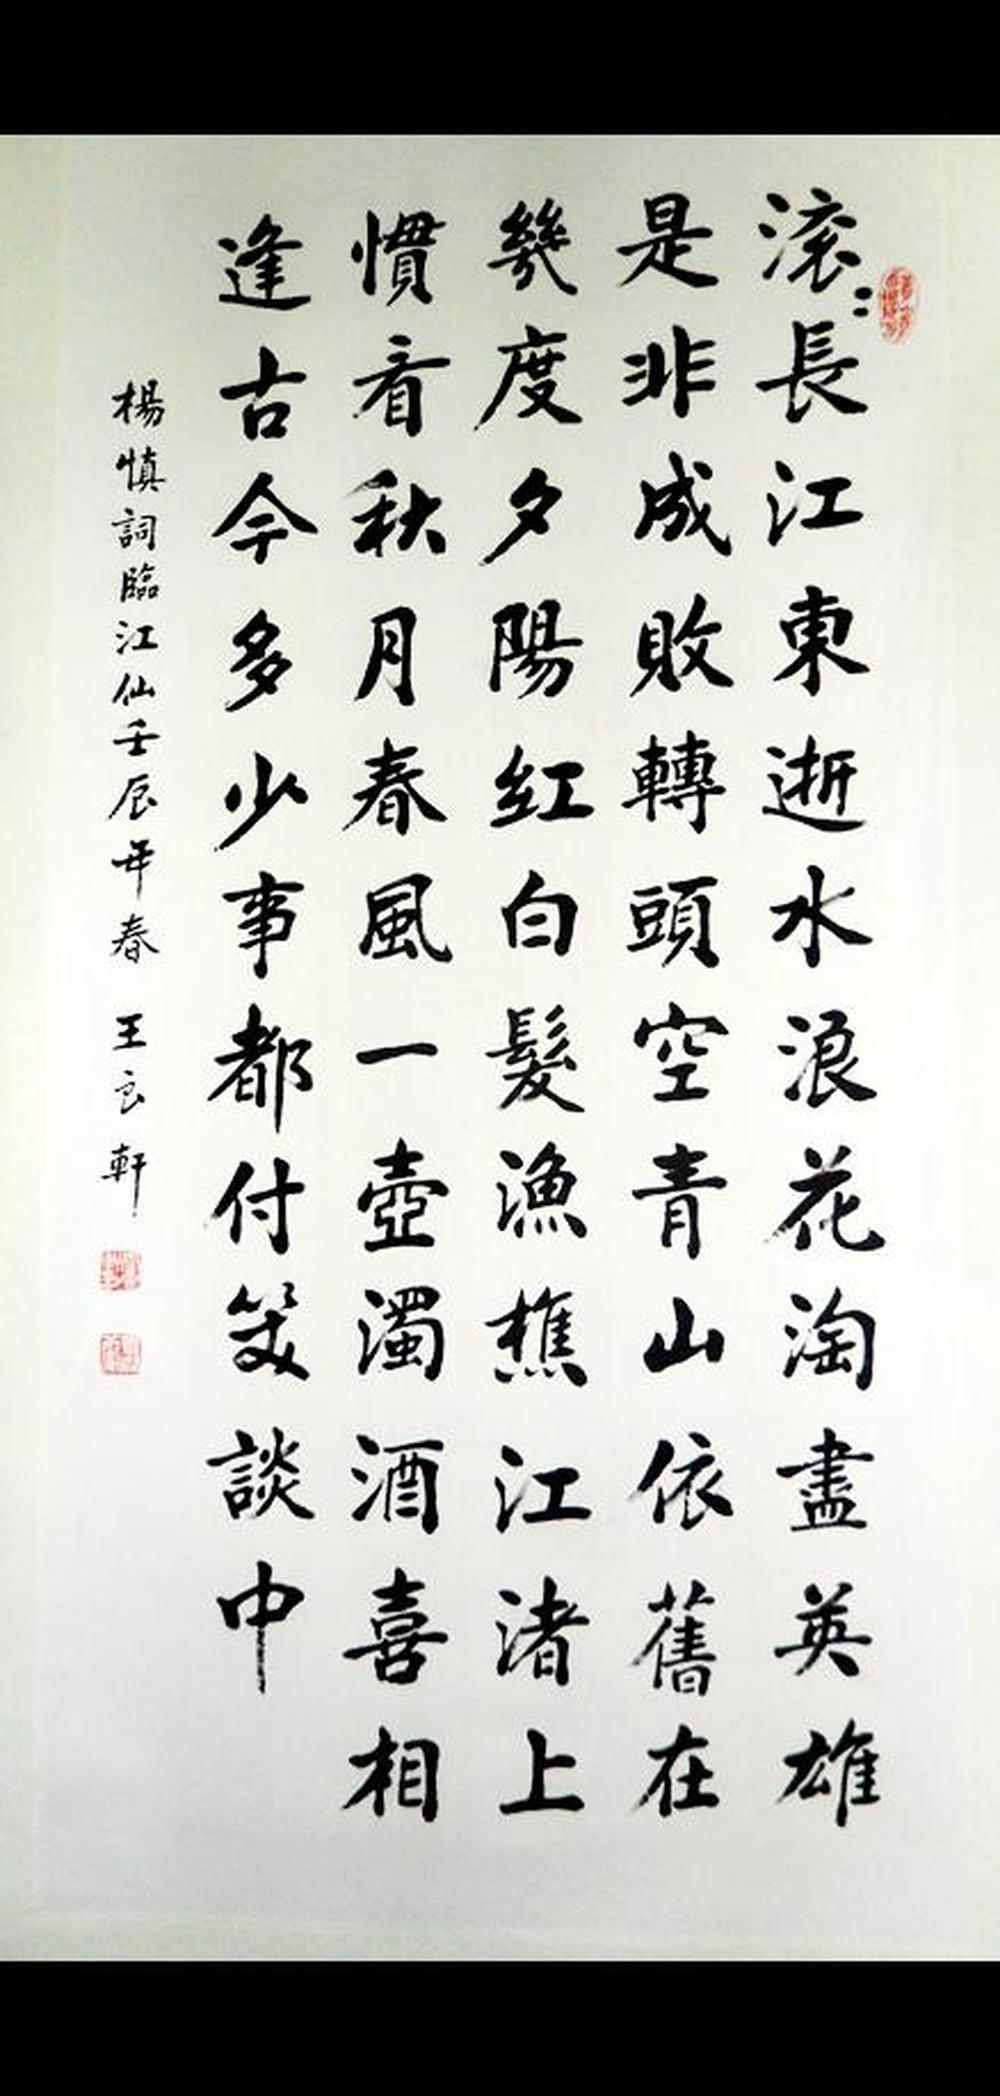 滚〻長江東逝水浪花淘盡英雄
是非成敗轉頭空青山依舊在
幾度夕陽紅白髮漁樵江渚上
慣看秋月春風一壺濁酒喜相
逢古今多少事都付笑談中
楊慎詞臨江仙壬辰年春 王良軒